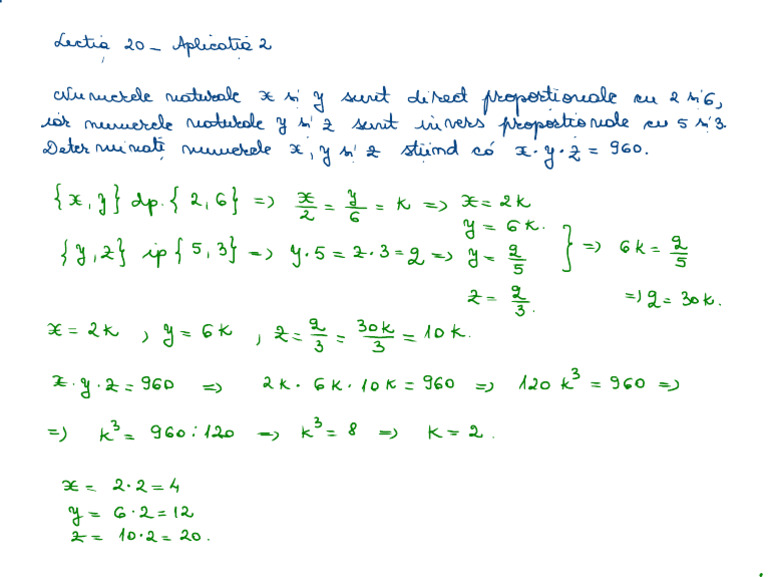 Lecția 20 - Aplicația 2
Numerele naturale x și y sunt direct proporționale cu 2 și 6,
iar numerele naturale y și z sunt invers proporționale cu 5 și 3.
Determinați numerele x, y și z știind că x·y·z = 960.
{x, y} dp. {2, 6} => x/2 = y/6 = k => x = 2k
y = 6k.
{y, z} ip {5, 3} => y·5 = z·3 = q => y = q/5 } => 6k = q/5
z = q/3. => q = 30k.
x = 2k , y = 6k , z = q/3 = 30k/3 = 10k.
x·y·z = 960 => 2k · 6k · 10k = 960 => 120 k³ = 960 =>
=> k³ = 960 : 120 => k³ = 8 => k = 2.
x = 2·2 = 4
y = 6·2 = 12
z = 10·2 = 20.